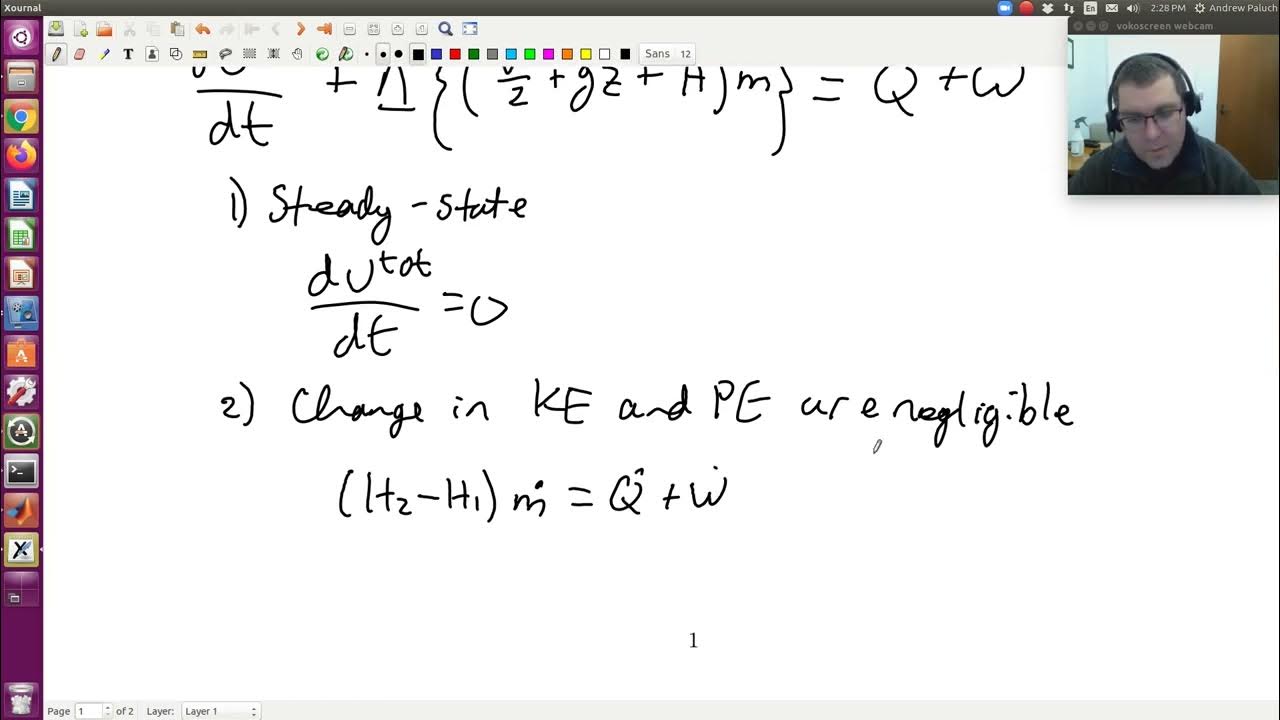 Xournal
En
2:28 PM
Andrew Paluch
vokoscreen webcam
Sans 12
dt + Δ{(v²/2 + gz + H)ṁ} = Q̇ + Ẇ
1) Steady-state
dU^tot/dt = 0
2) Change in KE and PE are negligible
(H₂-H₁) ṁ = Q̇ + Ẇ
1
Page 1 of 2 Layer: Layer 1